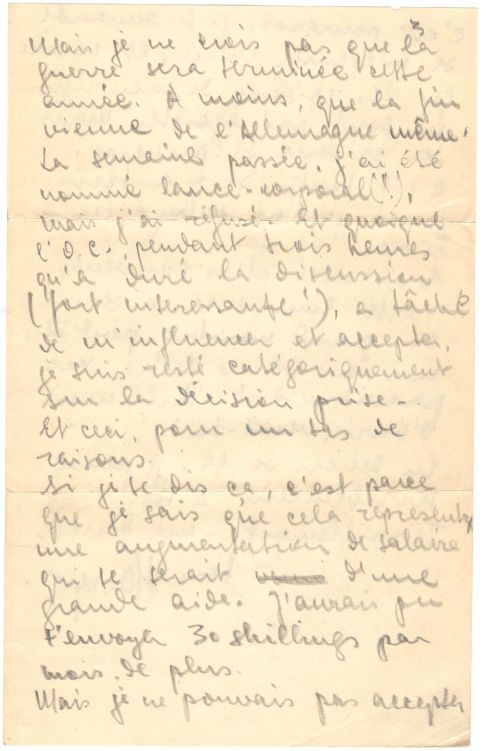 Mais je ne crois pas que la
guerre sera terminée cette
année. A moins, que la fin
vienne de l'Allemagne même.
La semaine passée, j'ai été
nommé lance-corporal(!),
mais j'ai réfusé. Et quoique
l'O.C. pendant trois heures
qu'a duré la discussion
(fort interessante!), a tâché
de m'influencer et accepter,
je suis resté catégoriquement
sur la décision prise.
Et ceci, pour un tas de
raisons.
Si je te dis ça, c'est parce
que je sais que cela represente
une augmentation de salaire
qui te serait d'une
grande aide. J'aurais pu
t'envoyer 30 shillings par
mois de plus.
Mais je ne pouvais pas accepter